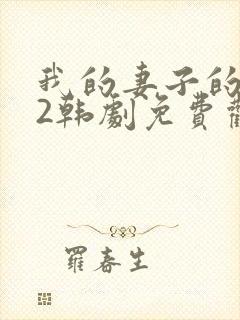 我的妻子的
2韩劇免費
羅春生